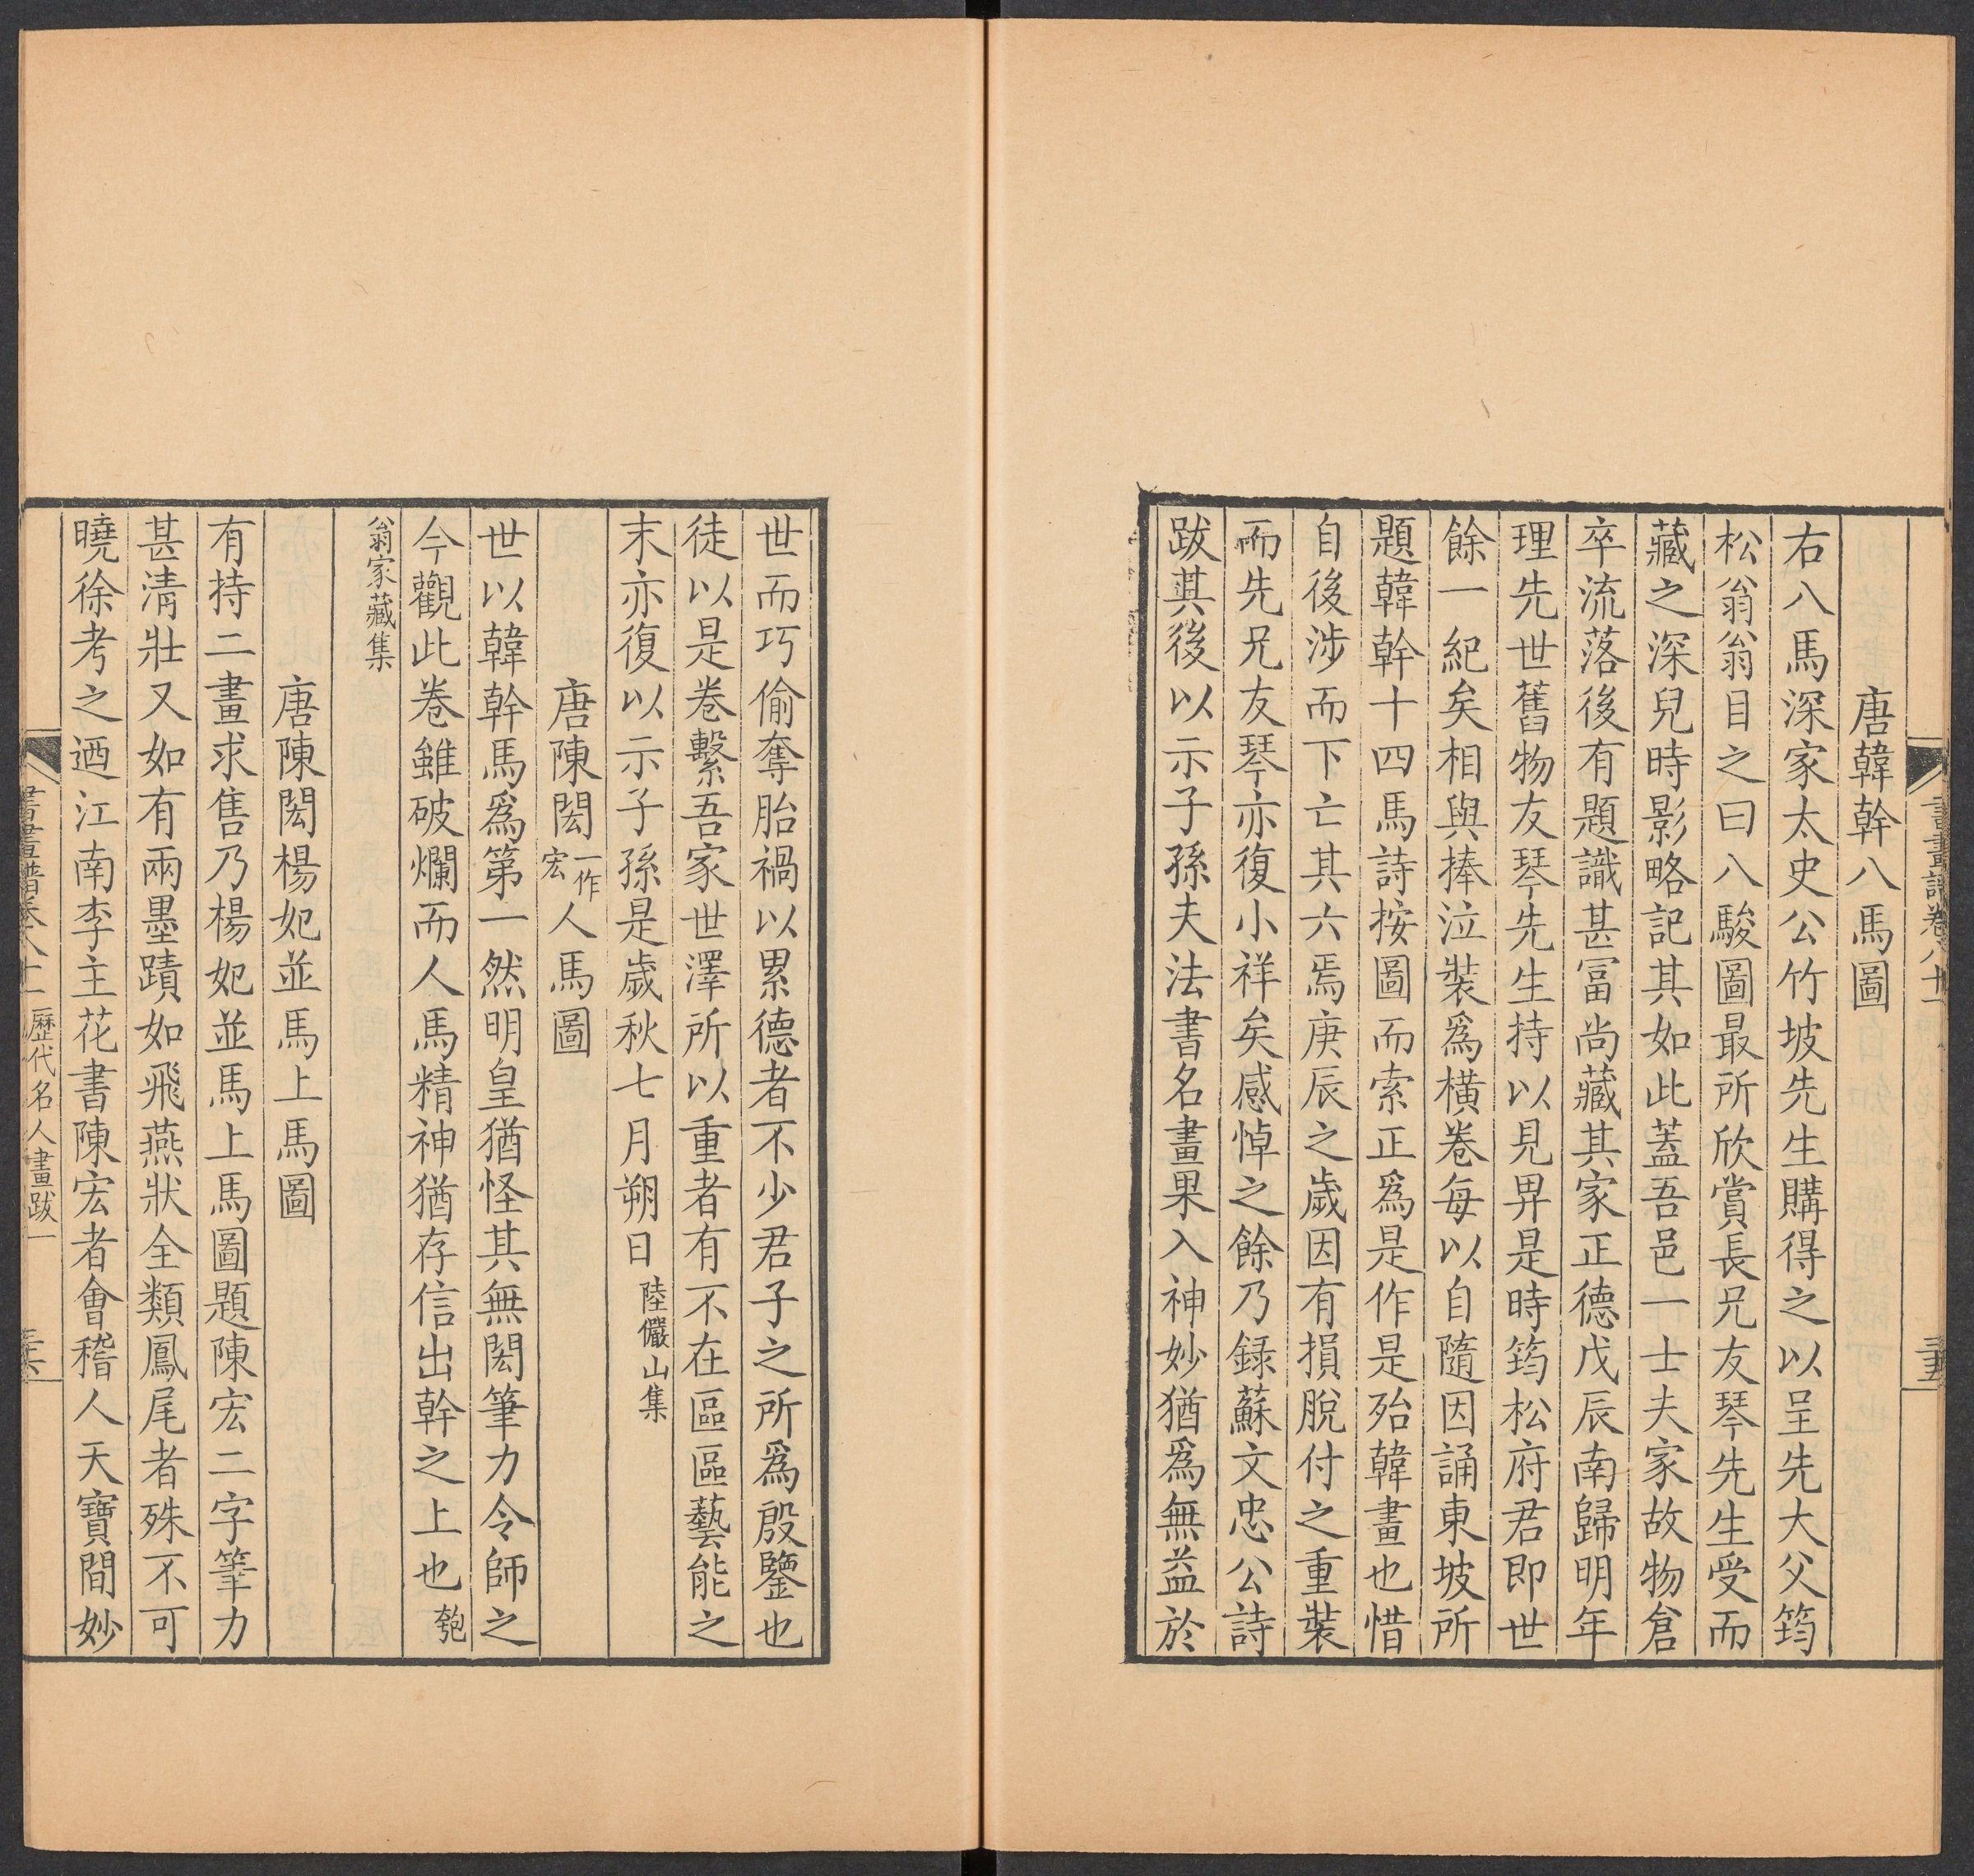 書畫譜卷八十一 三五
唐韓幹八馬圖
右八馬深家太史公竹坡先生購得之以呈先大父筠
松翁翁目之曰八駿圖最所欣賞長兄友琴先生受而
藏之深兒時影略記其如此蓋吾邑一士夫家故物倉
卒流落後有題識甚富尚藏其家正德戊辰南歸明年
理先世舊物友琴先生持以見畀是時筠松府君即世
餘一紀矣相與捧泣裝爲橫卷每以自隨因誦東坡所
題韓幹十四馬詩按圖而索正爲是作是殆韓畫也惜
自後涉而下亡其六焉庚辰之歲因有損脫付之重裝
而先兄友琴亦復小祥矣感悼之餘乃録蘇文忠公詩
跋其後以示子孫夫法書名畫果入神妙猶爲無益於
世而巧偷奪胎禍以累德者不少君子之所爲殷鑒也
徒以是卷繫吾家世澤所以重者有不在區區藝能之
末亦復以示子孫是歲秋七月朔日陸儼山集
唐陳閎一作宏人馬圖
世以韓幹馬爲第一然明皇猶怪其無閎筆力令師之
今觀此卷雖破爛而人馬精神猶存信出幹之上也匏
翁家藏集
唐陳閎楊妃並馬上馬圖
有持二畫求售乃楊妃並馬上馬圖題陳宏二字筆力
甚清壯又如有兩墨蹟如飛燕狀全類鳳尾者殊不可
曉徐考之迺江南李主花書陳宏者會稽人天寶間妙
書畫譜卷八十一 歷代名人畫跋一 三六